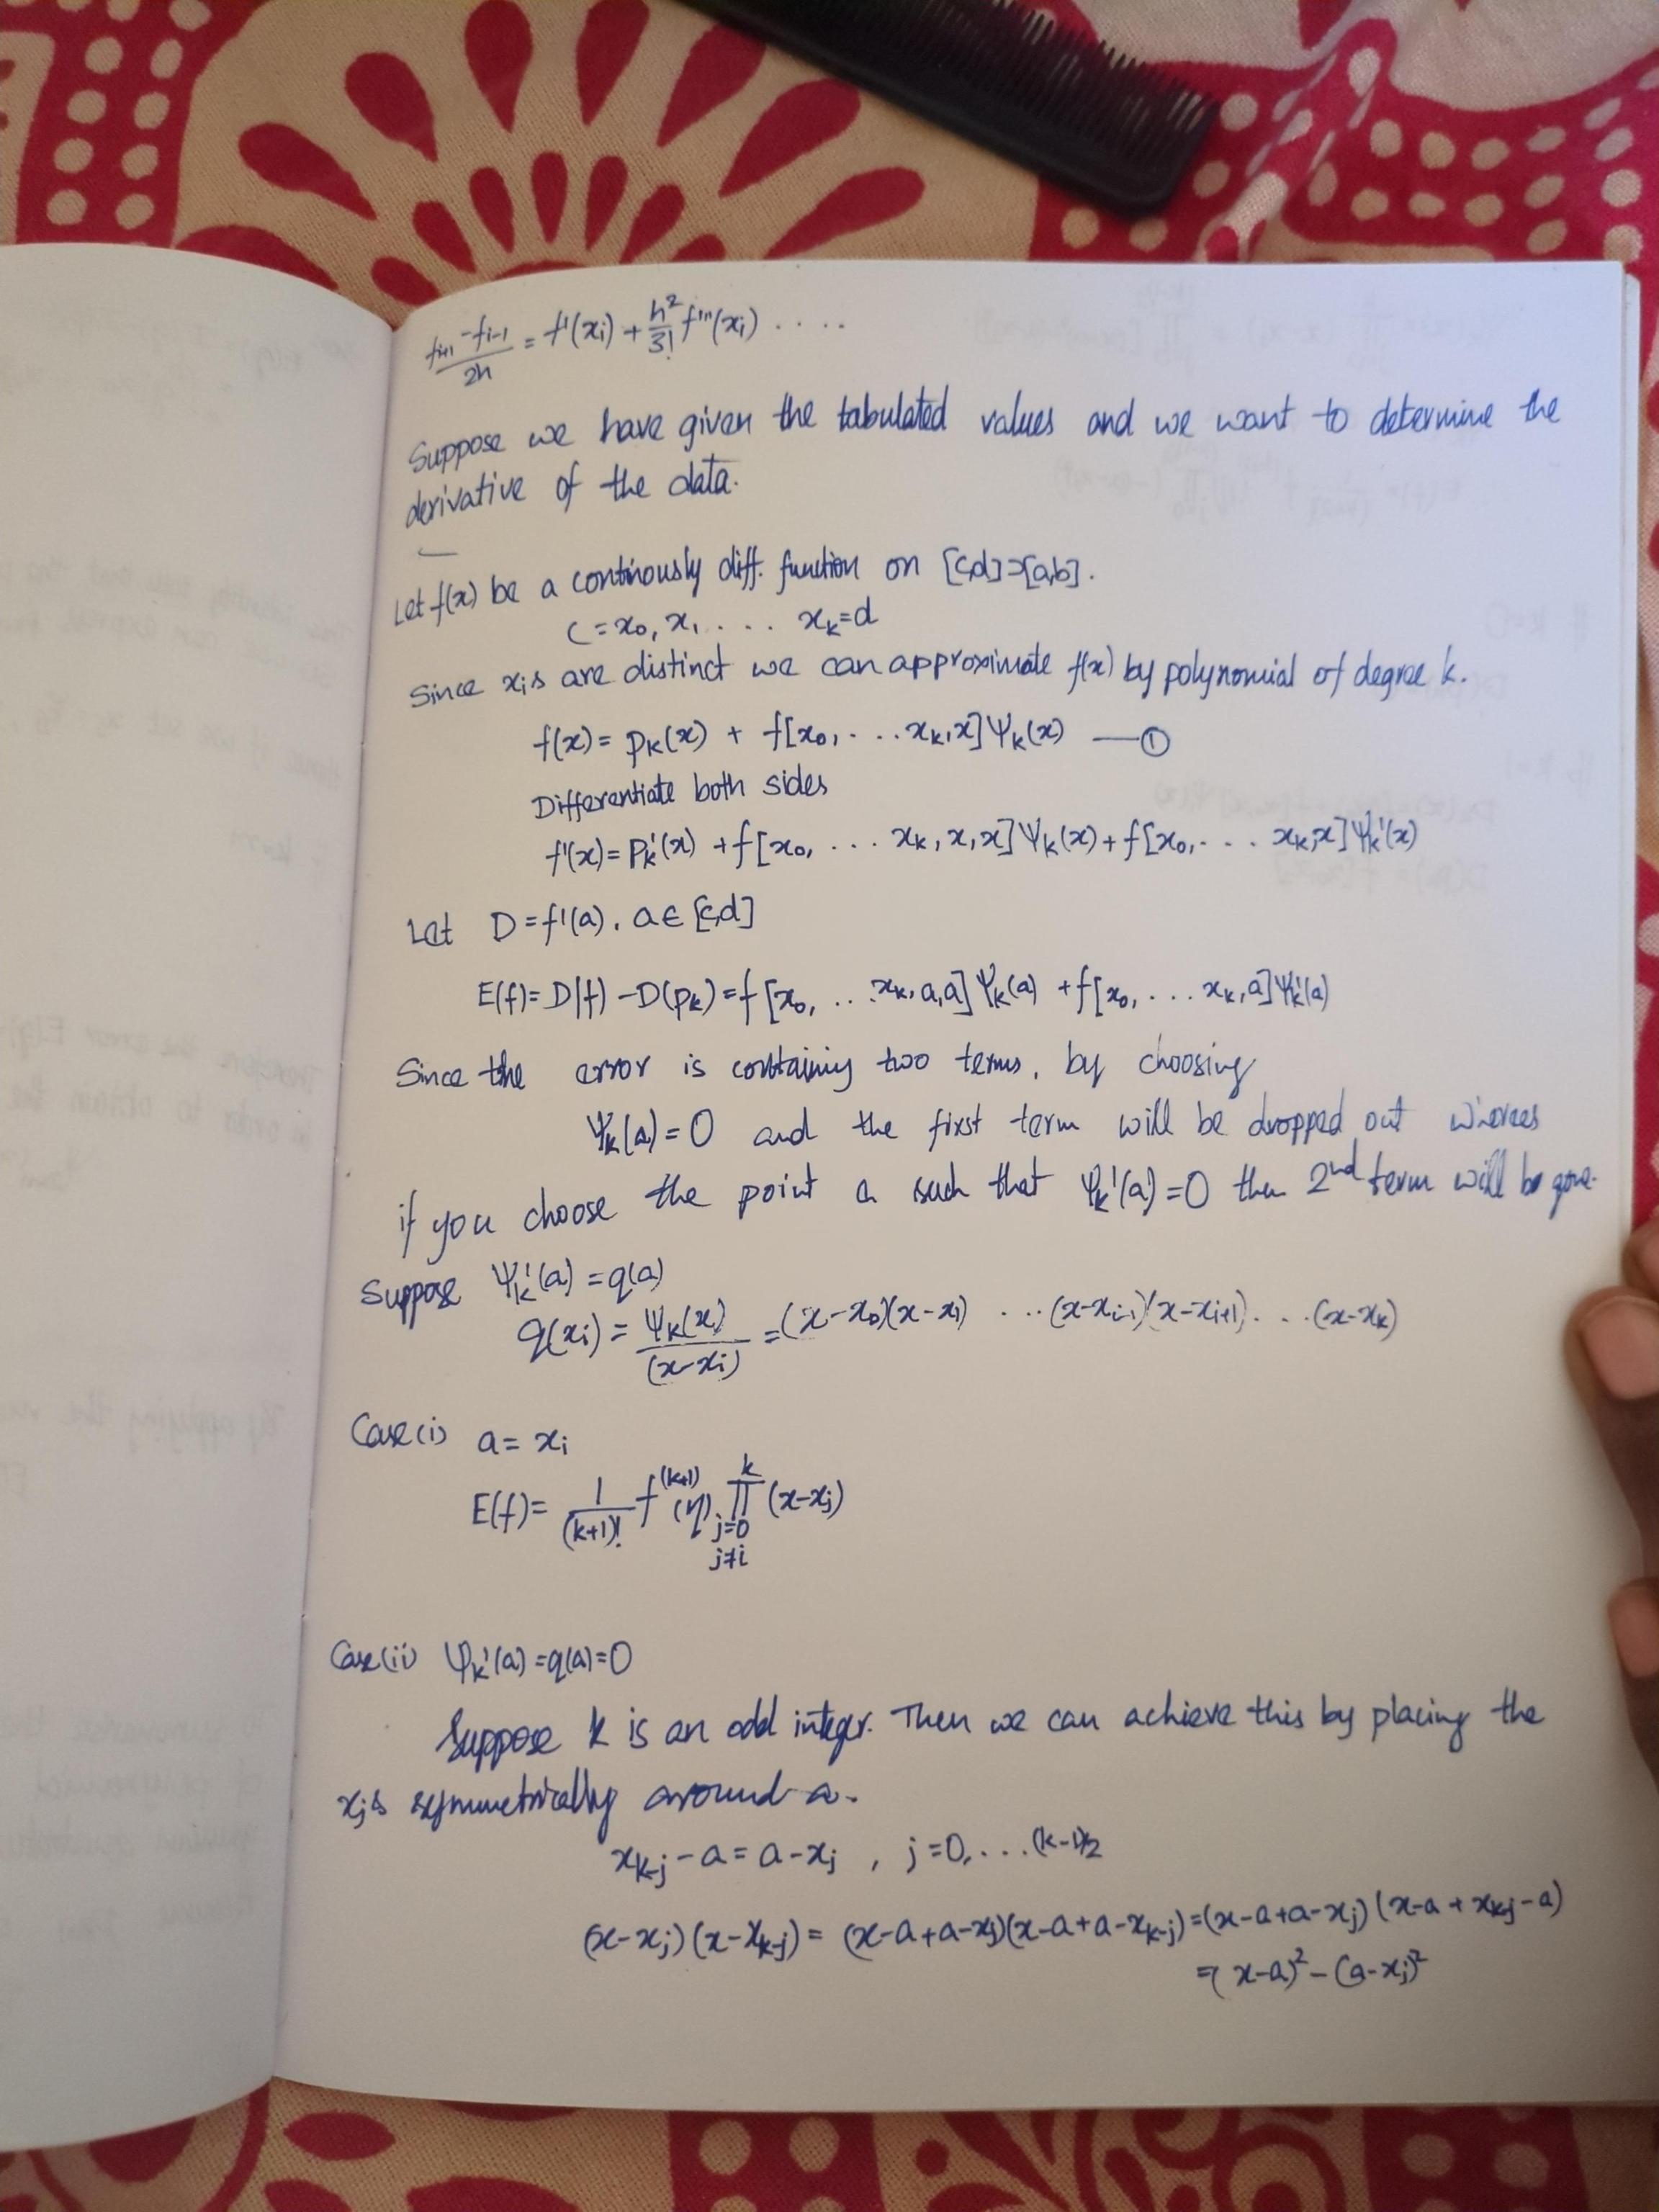 (f_{i+1} - f_{i-1})/2h = f'(x_i) + h²/3! f'''(x_i) ....
Suppose we have given the tabulated values and we want to determine the
derivative of the data.
Let f(x) be a continously diff. function on [c,d]⊃[a,b].
C = x₀, x₁ .... x_k = d
Since x_i s are distinct we can approximate f(x) by polynomial of degree k.
f(x) = p_k(x) + f[x₀, ... x_k, x] Ψ_k(x) —①
Differentiate both sides
f'(x) = P_k'(x) + f[x₀, ... x_k, x, x] Ψ_k(x) + f[x₀, ... x_k, x] Ψ_k'(x)
Let D = f'(a). a ∈ [c,d]
E(f) = D(f) - D(p_k) = f[x₀, ... x_k, a, a] Ψ_k(a) + f[x₀, ... x_k, a] Ψ_k'(a)
Since the error is containing two terms, by choosing
Ψ_k(a) = 0 and the first term will be dropped out wherees
if you choose the point a such that Ψ_k'(a) = 0 then 2nd term will be gone.
Suppose Ψ_k'(a) = q(a)
q(x_i) = Ψ_k(x)/(x-x_i) = (x-x₀)(x-x₁) ... (x-x_{i-1})(x-x_{i+1}) ... (x-x_k)
Case(i) a = x_i
E(f) = 1/(k+1)! f^(k+1)(η) ∏_{j=0, j≠i}^{k} (x-x_j)
Case(ii) Ψ_k'(a) = q(a) = 0
Suppose k is an odd integer. Then we can achieve this by placing the
x_j s symmetrically around a.
x_{k-j} - a = a - x_j , j = 0, ... (k-1)/2
(x-x_j)(x-x_{k-j}) = (x-a+a-x_j)(x-a+a-x_{k-j}) = (x-a+a-x_j)(x-a+x_{k-j}-a)
= (x-a)² - (a-x_j)²